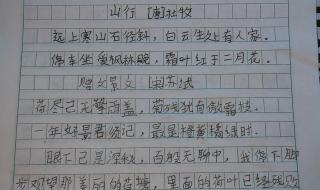 山行 [唐]杜牧
远上寒山石径斜，白云生处有人家。
停车坐爱枫林晚，霜叶红于二月花。
赠刘景文 [宋]苏轼
荷尽已无擎雨盖，菊残犹有傲霜枝。
一年好景君须记，最是橙黄橘绿时。
眼下已是深秋，百般无聊中，我停下脚
步观望那美丽的荷塘，里面的荷叶已经残败